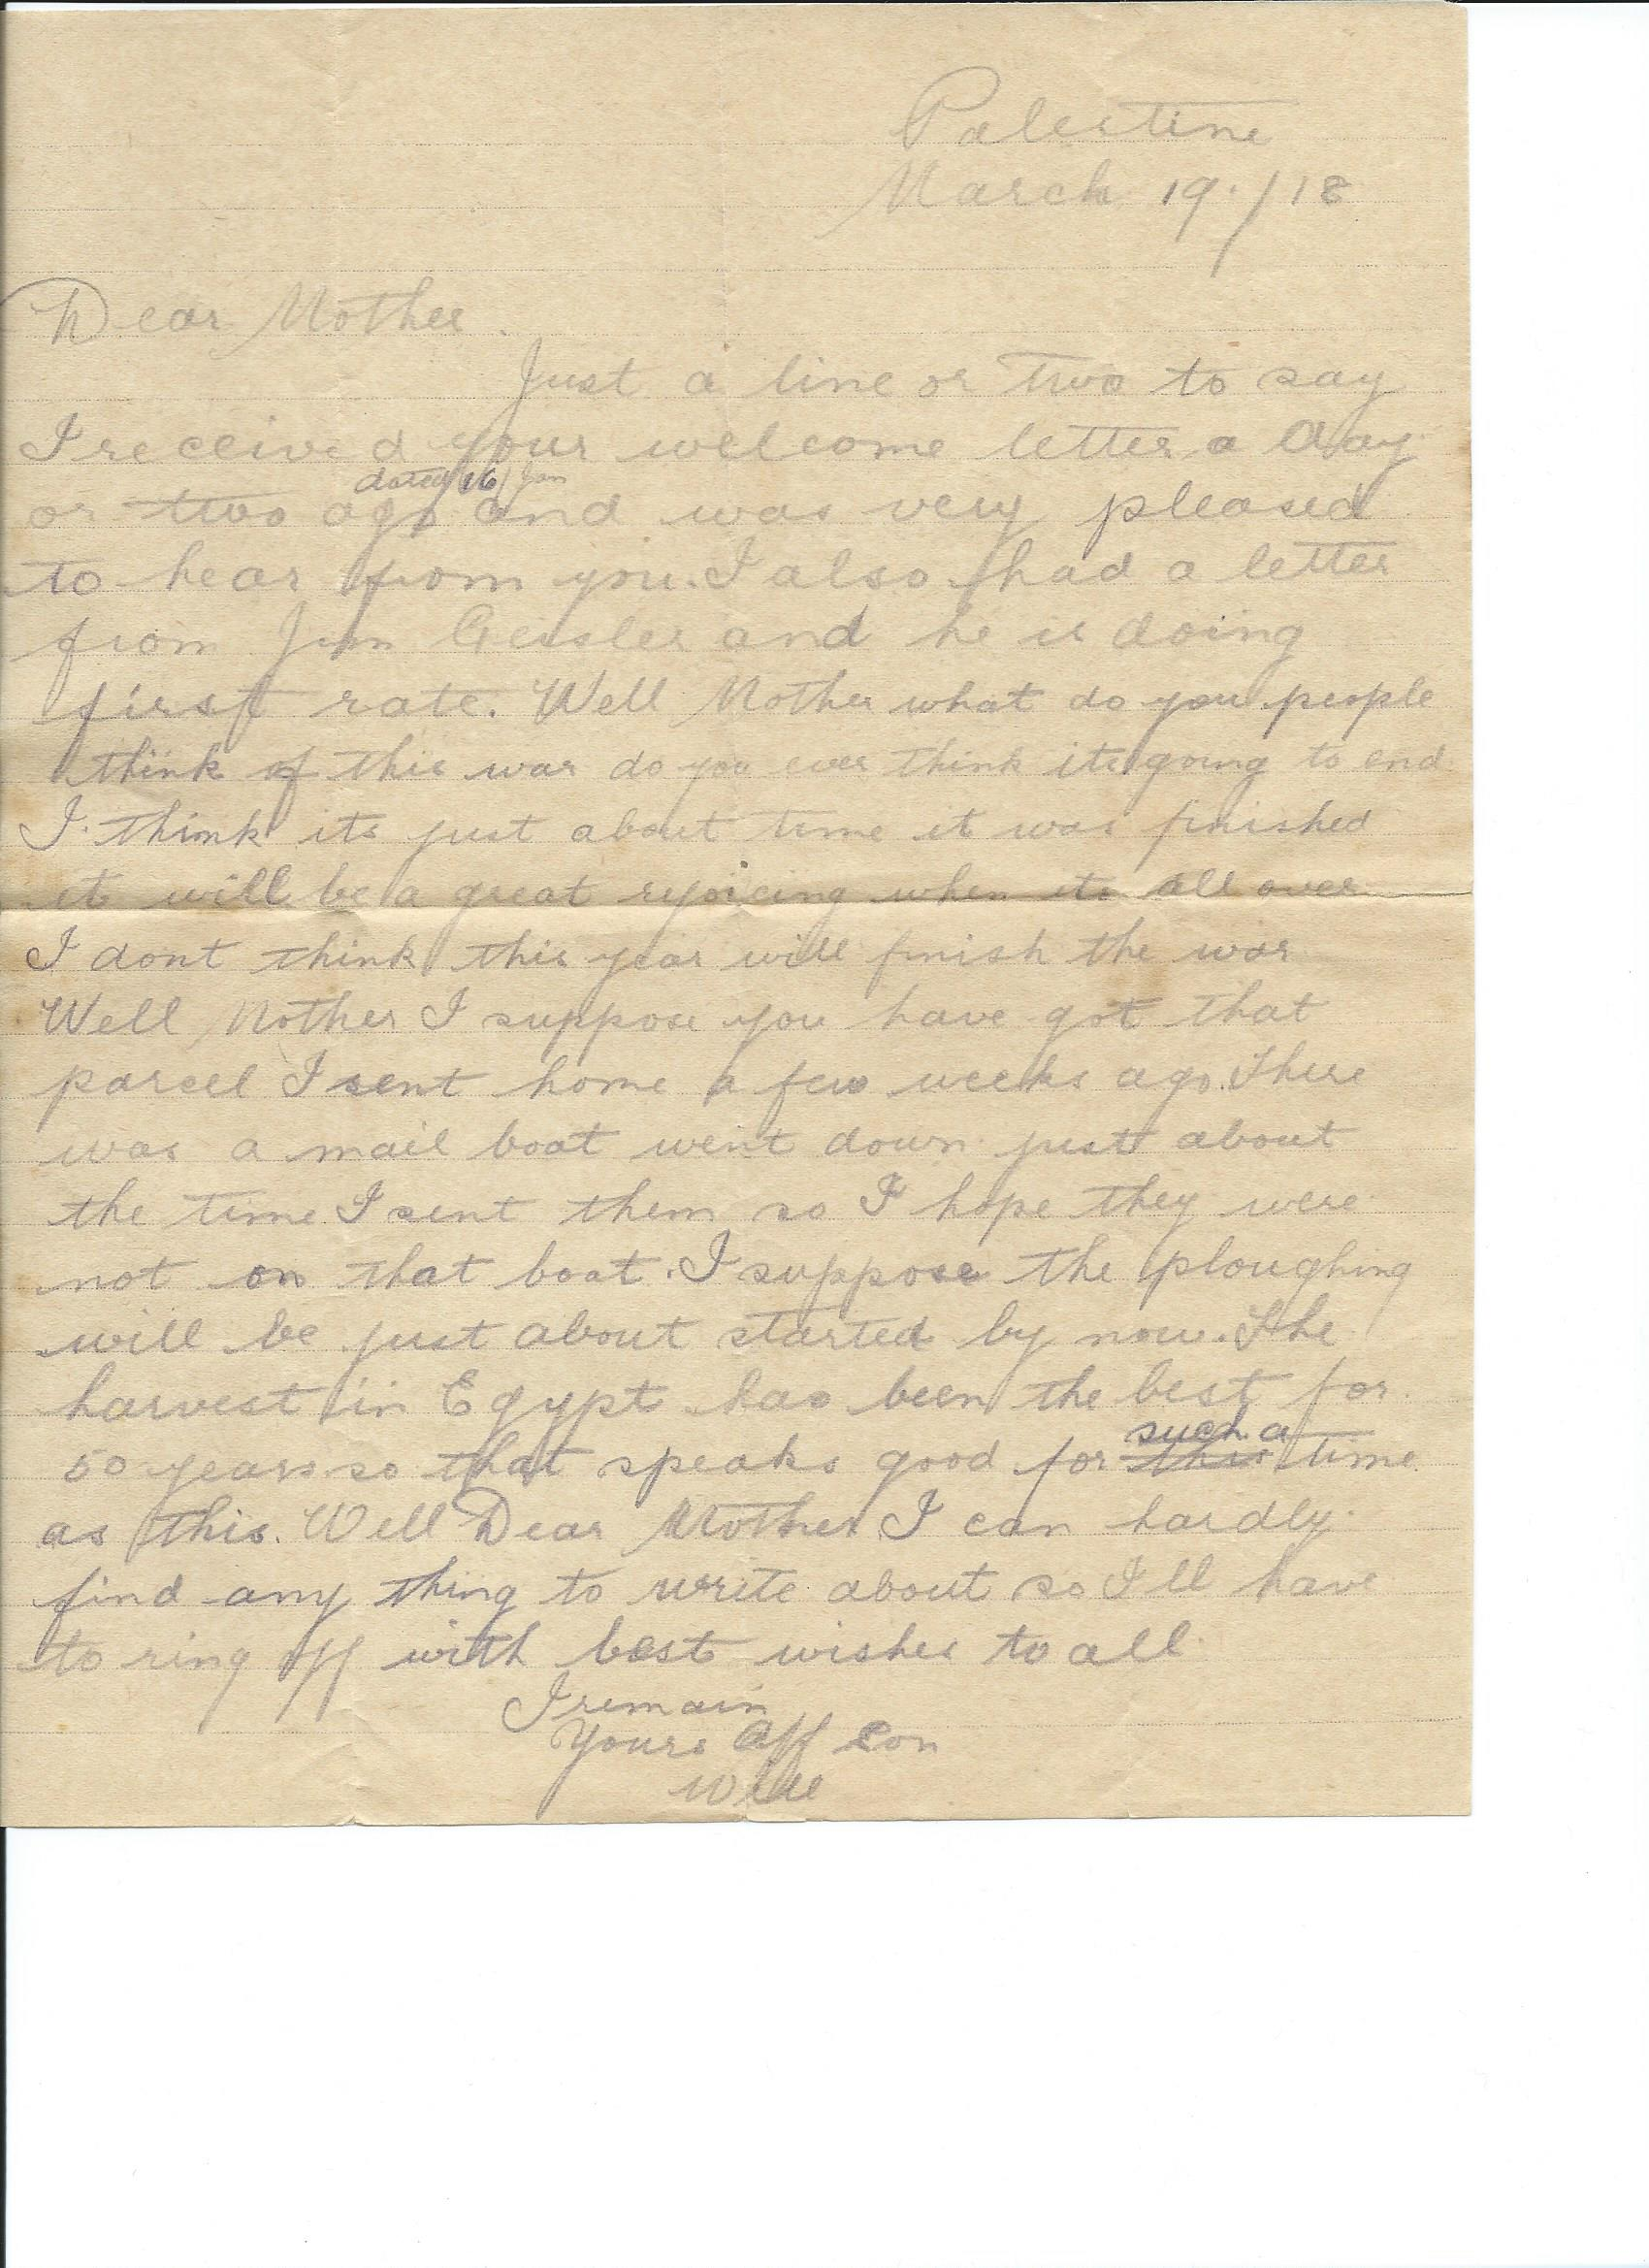 Palestine
March 19./18
Dear Mother.
Just a line or two to say
I received your welcome letter a day
dated 16/Jan
or two ago and was very pleased
to hear from you. I also had a letter
from Jim Geissler and he is doing
first rate. Well Mother what do you people
think of this war do you ever think its going to end
I think its just about time it was finished
it will be a great rejoicing when its all over
I dont think this year will finish the war
Well Mother I suppose you have got that
parcel I sent home a few weeks ago. There
was a mail boat went down just about
the time I sent them so I hope they were
not on that boat. I suppose the ploughing
will be just about started by now. The
harvest in Egypt has been the best for
such a
50 years so that speaks good for this time
as this. Well Dear Mother I can hardly
find any thing to write about so Ill have
to ring off with best wishes to all
I remain
Yours Aff Son
Will